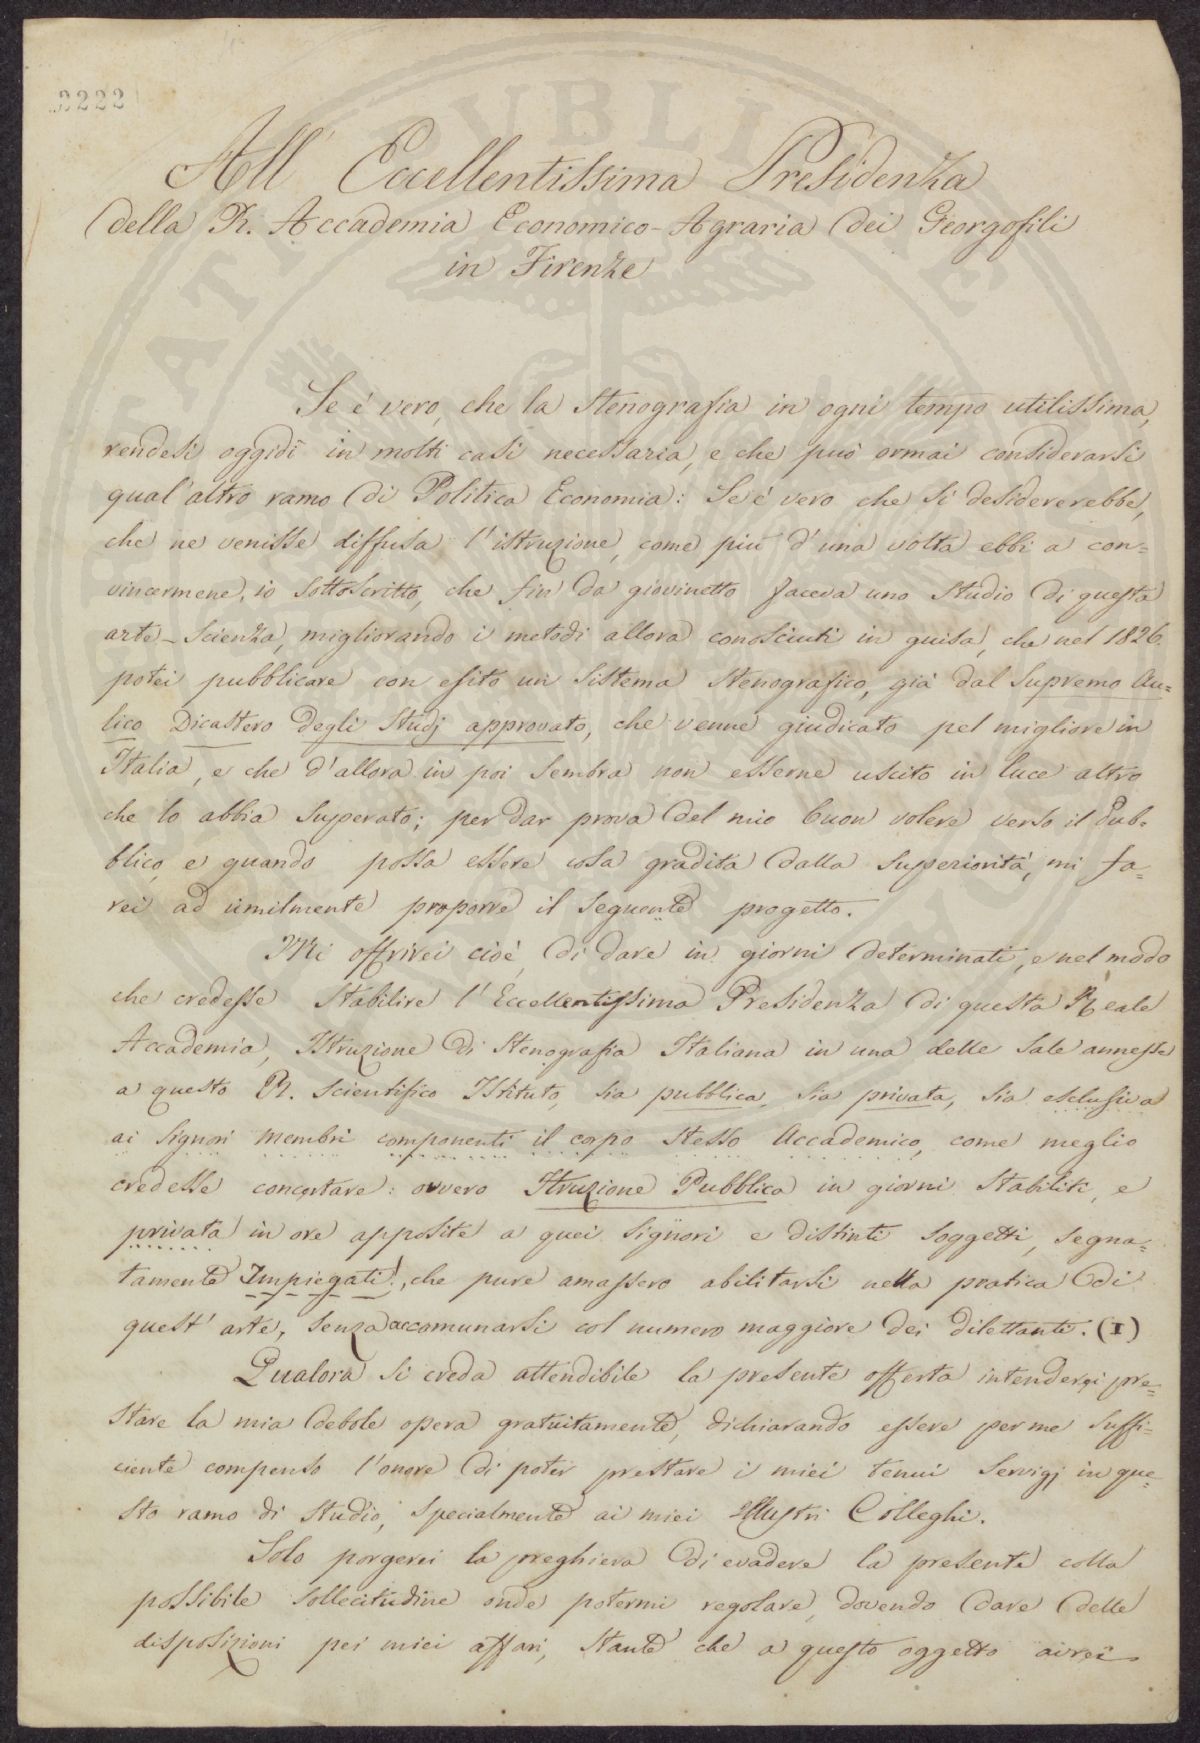 2222
All' Eccellentissima Presidenza
della R. Accademia Economico-Agraria dei Georgofili
in Firenze
Se é vero, che la Stenografia in ogni tempo utilissima,
rendesi oggidì in molti casi necessaria, e che può ormai considerarsi
qual'altro ramo di Politica Economia: Se é vero che si desidererebbe,
che ne venisse diffusa l'istruzione, come più d'una volta ebbi a con=
vincermene, io sottoscritto, che fin da giovinetto faceva uno studio di questa
arte-scienza, migliorando i metodi allora conosciuti in guisa, che nel 1826.
potei pubblicare con esito un sistema Stenografico, già dal Supremo Au=
lico Dicastero degli Studj approvato, che venne giudicato pel migliore in
Italia, e che d'allora in poi sembra non esserne uscito in luce altro
che lo abbia superato; per dar prova del mio buon volere verso il Pub=
blico, e quando possa essere cosa gradita dalla Superiorità, mi fa=
rei ad umilmente proporre il seguente progetto.
Mi offrirei cioé, di dare in giorni determinati, e nel modo
che credesse stabilire l'Eccellentissima Presidenza di questa Reale
Accademia, Istruzione di Stenografia Italiana in una delle sale annesse
a questo R. Scientifico Istituto, sia pubblica, sia privata, sia esclusiva
ai Signori membri componenti il corpo stesso Accademico, come meglio
credesse concertare: ovvero Istruzione Pubblica in giorni stabiliti, e
privata in ore apposite a quei Signori e distinti soggetti, segna=
tamente Impiegati, che pure amassero abilitarsi nella pratica di
quest'arte, senza accomunarsi col numero maggiore dei dilettanti. (1)
Qualora si creda attendibile la presente offerta intenderei pre=
stare la mia debole opera gratuitamente, dichiarando essere per me suffi=
ciente compenso l'onore di poter prestare i miei tenui servigj in que=
sto ramo di studio, specialmente ai miei Illustri Colleghi.
Solo porgerei la preghiera di evadere la presente colla
possibile sollecitudine onde potermi regolare, dovendo dare delle
disposizioni pei miei affari, stante che a questo oggetto avrei